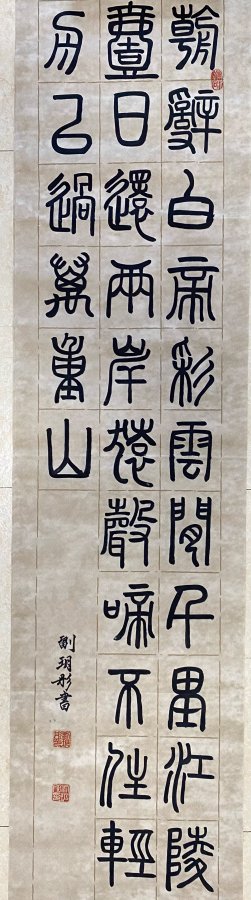 朝辭白帝彩雲間千里江陵
壹日還兩岸猿聲啼不住輕
舟已過萬重山
劉玥彤書